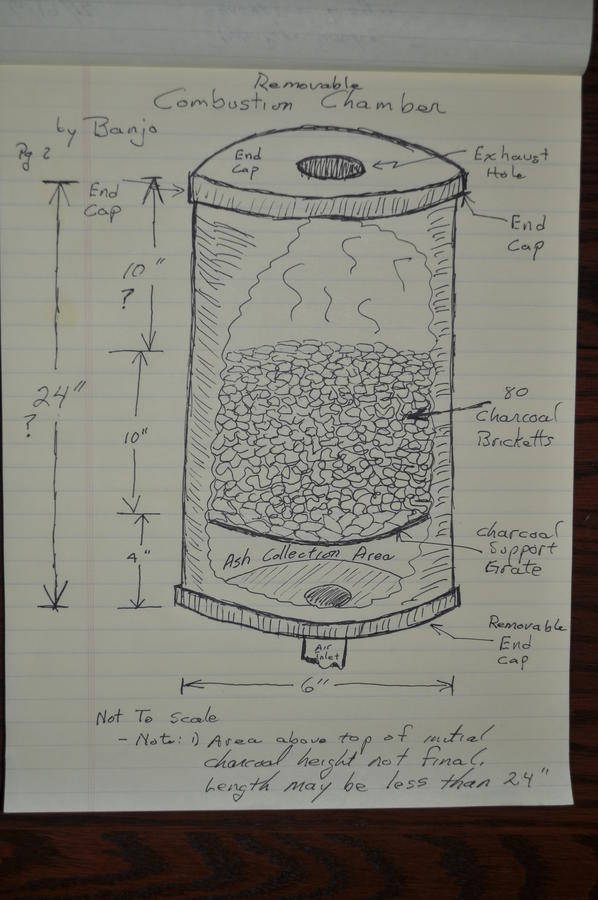 Removable
Combustion Chamber
by Banjo
Pg 2
End
Cap
Exhaust
Hole
End
Cap
End
Cap
10"
?
24"
?
10"
4"
80
Charcoal
Bricketts
Charcoal
Support
Grate
Ash Collection Area
Removable
End
Cap
Air
inlet
6"
Not To Scale
- Note: 1) Area above top of initial
charcoal height not final.
Length may be less than 24"